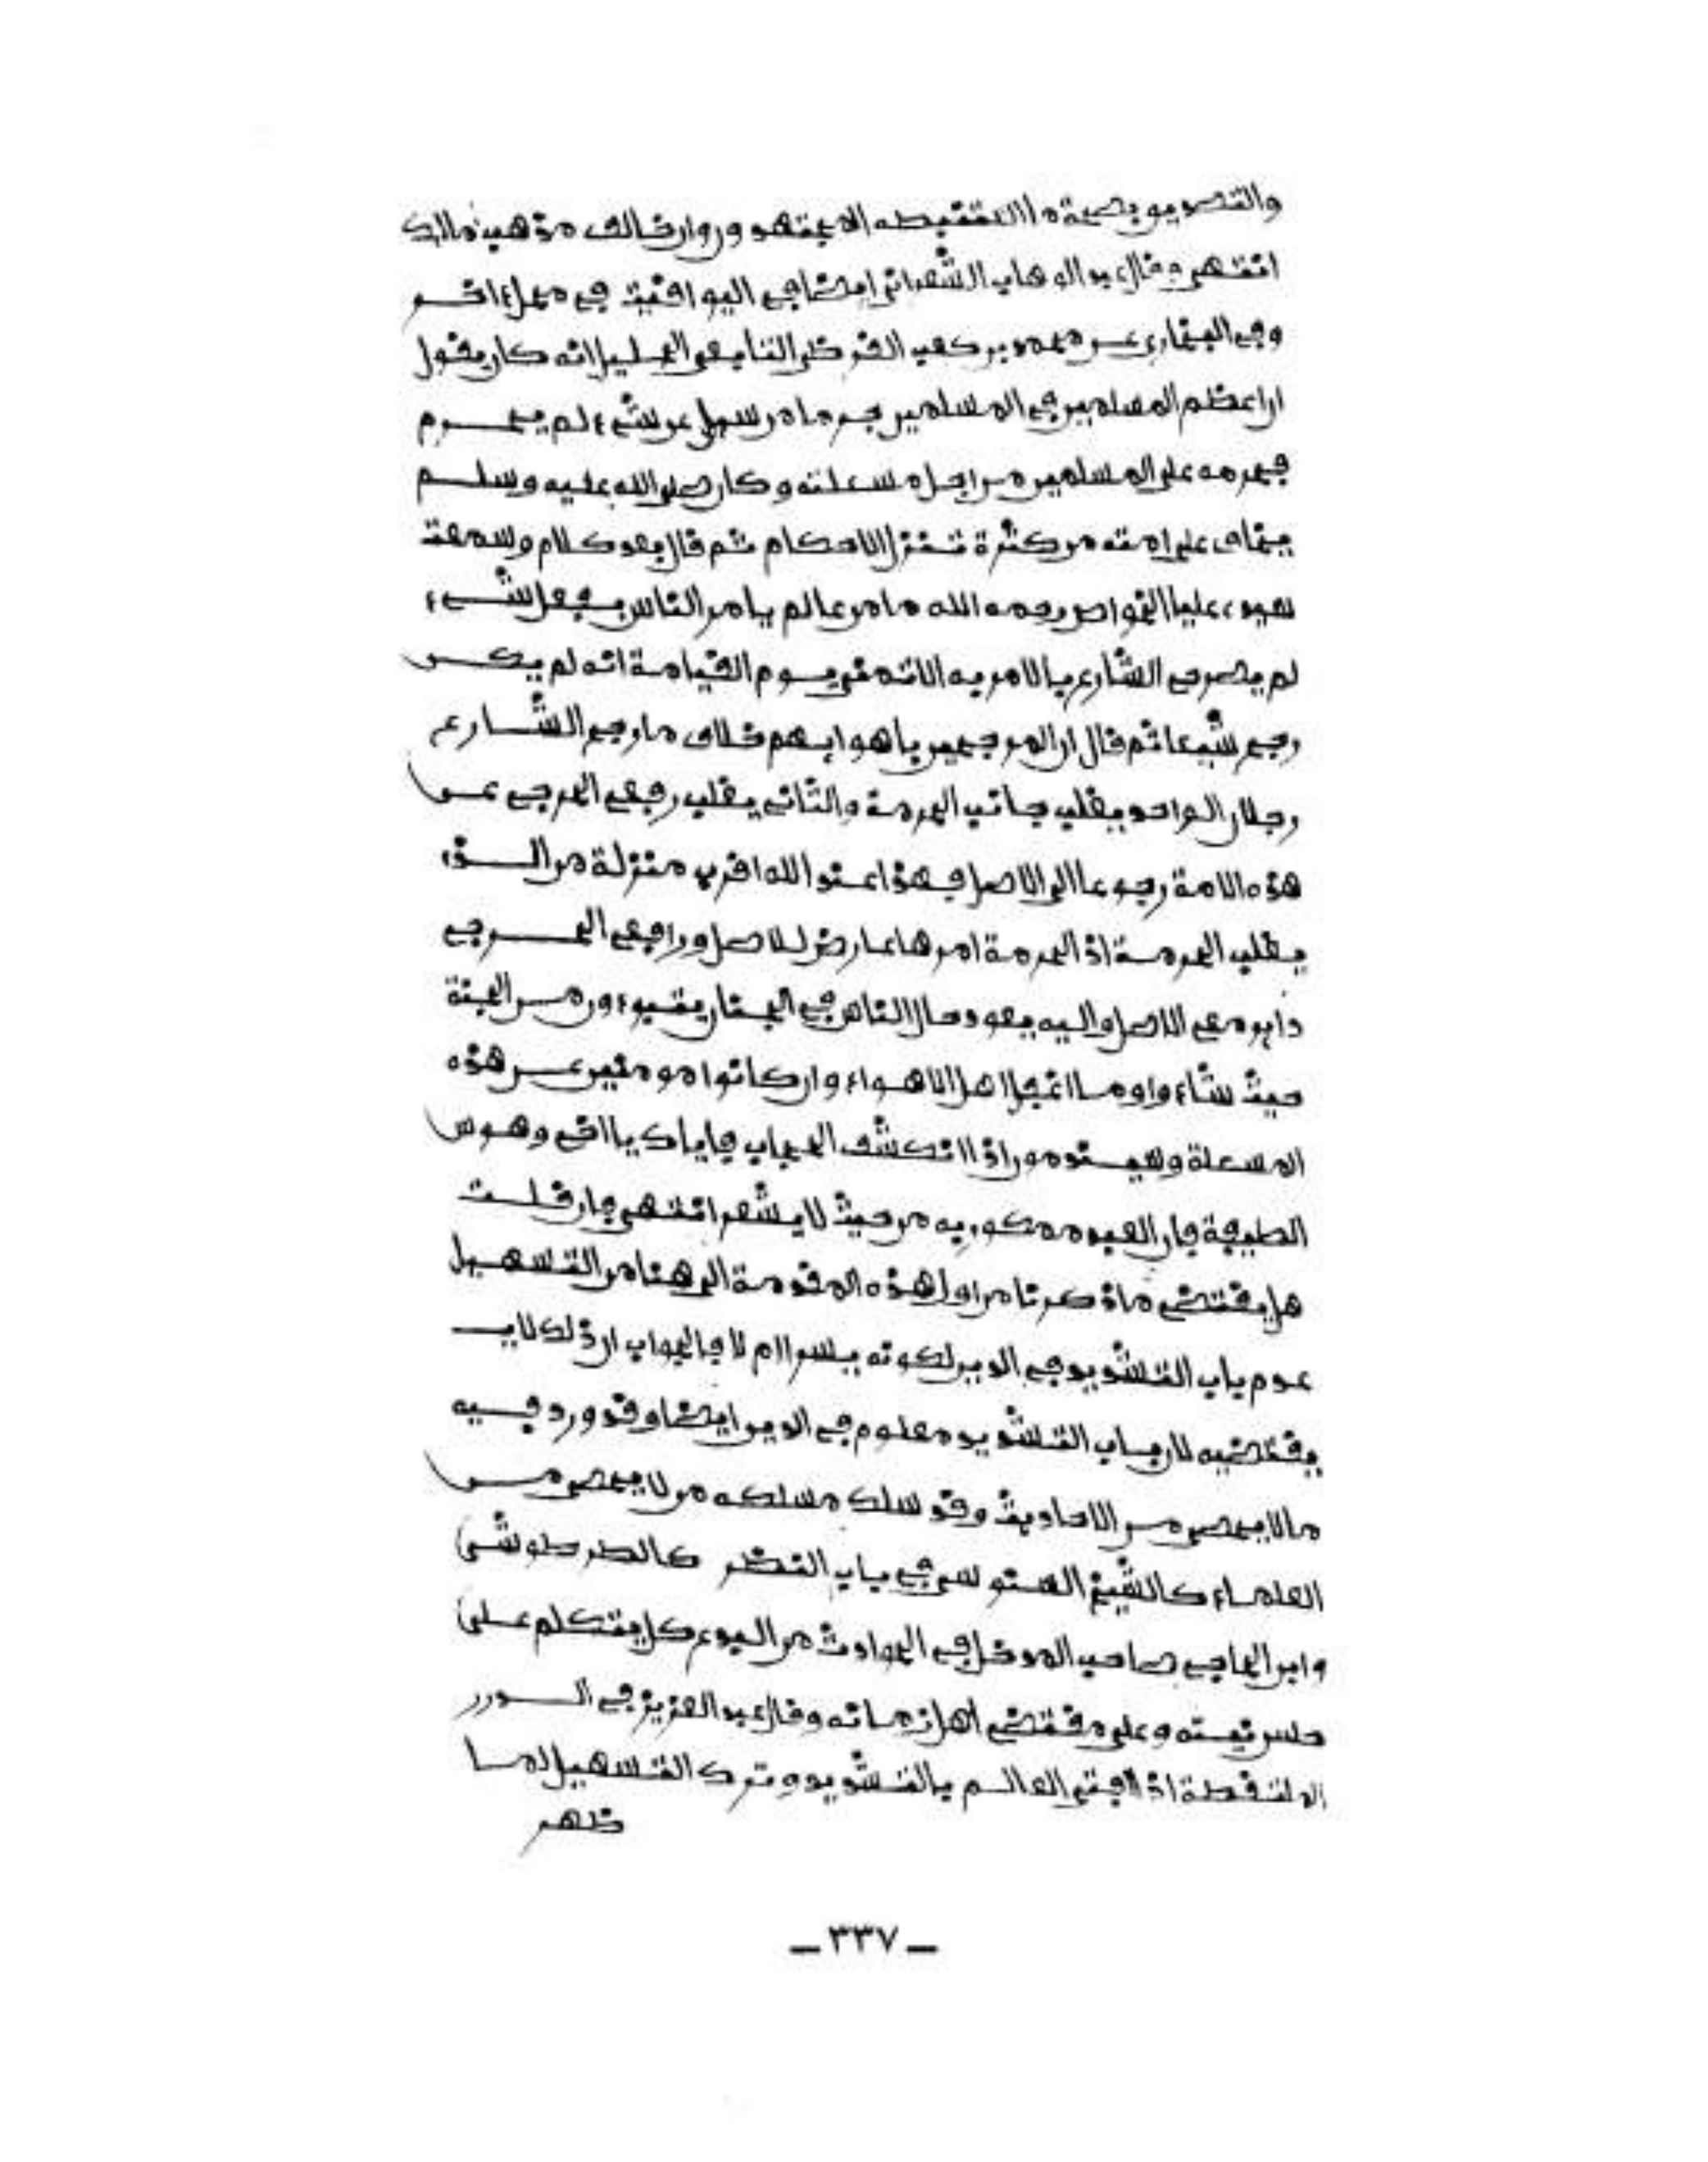 والتصديق بصحة ما استنبطه المجتهد وروان خالف مذهب مالك
انتهى وقال عبد الوهاب الشعراني ايضا في اليواقيت في محل ءاخر
وفي البخاري عن محمد بن كعب القرظي التابعي الجليل انه كان يقول
ان اعظم المسلمين في المسلمين جرما من سيل عن شيء لم يحرم
فحرمه على المسلمين من اجل مسئلته وكان صلى الله عليه وسلم
يخاف على امته من كثرة تنزل الاحكام ثم قال بعد كلام وسمعت
سيدي عليا الخواص رحمه الله ما من عالم يامر الناس بفعل شيء
لم يصرح الشارع بالامر به الا تمنى يوم القيامة انه لم يكن
رجح شيئا ثم قال ان المرجحين باهوايهم خلاف ما رجح الشارع
رجلان الواحد يغلب جانب الحرمة والثاني يغلب رفع الحرج عن
هذه الامة رجوعا الى الاصل فهذا عند الله اقرب منزلة من الذي
يغلب الحرمة اذ الحرمة امر ها عارض للاصل ورافع الحرج
داير مع الاصل واليه يعود حال الناس في الجنان يتبوءون من الجنة
حيث شاءوا وما اغفل اهل الاهواء وان كانوا مومنين عن هذه
المسئلة وسيندمون اذا انكشف الحجاب فاياك يا اخي وهوس
الطبيعة فان العبد ممكور به من حيث لا يشعر انتهى فان قلت
هل يقتضي ما ذكرنا من اول هذه المقدمة الى هنا من التسهيل
عدم باب التشديد في الدين لكونه يسرا ام لا فالجواب ان ذلك لا
يقتضيه لان باب التشديد معلوم في الدين ايضا وقد ورد فيه
ما لا يحصى من الاحاديث وقد سلك مسلكه من لا يحصى من
العلماء كالشيخ السنوسي في باب النظر كالطرطوشي
وابن الحاج صاحب المدخل في الحوادث من البدع كل يتكلم على
حسن نيته وعلى مقتضى اهل زمانه وقال عبد العزيز في الدرر
الملتقطة اذا افتى العالم بالتشديد وترك التسهيل لما
ظهر
ــ ٣٣٧ ــ